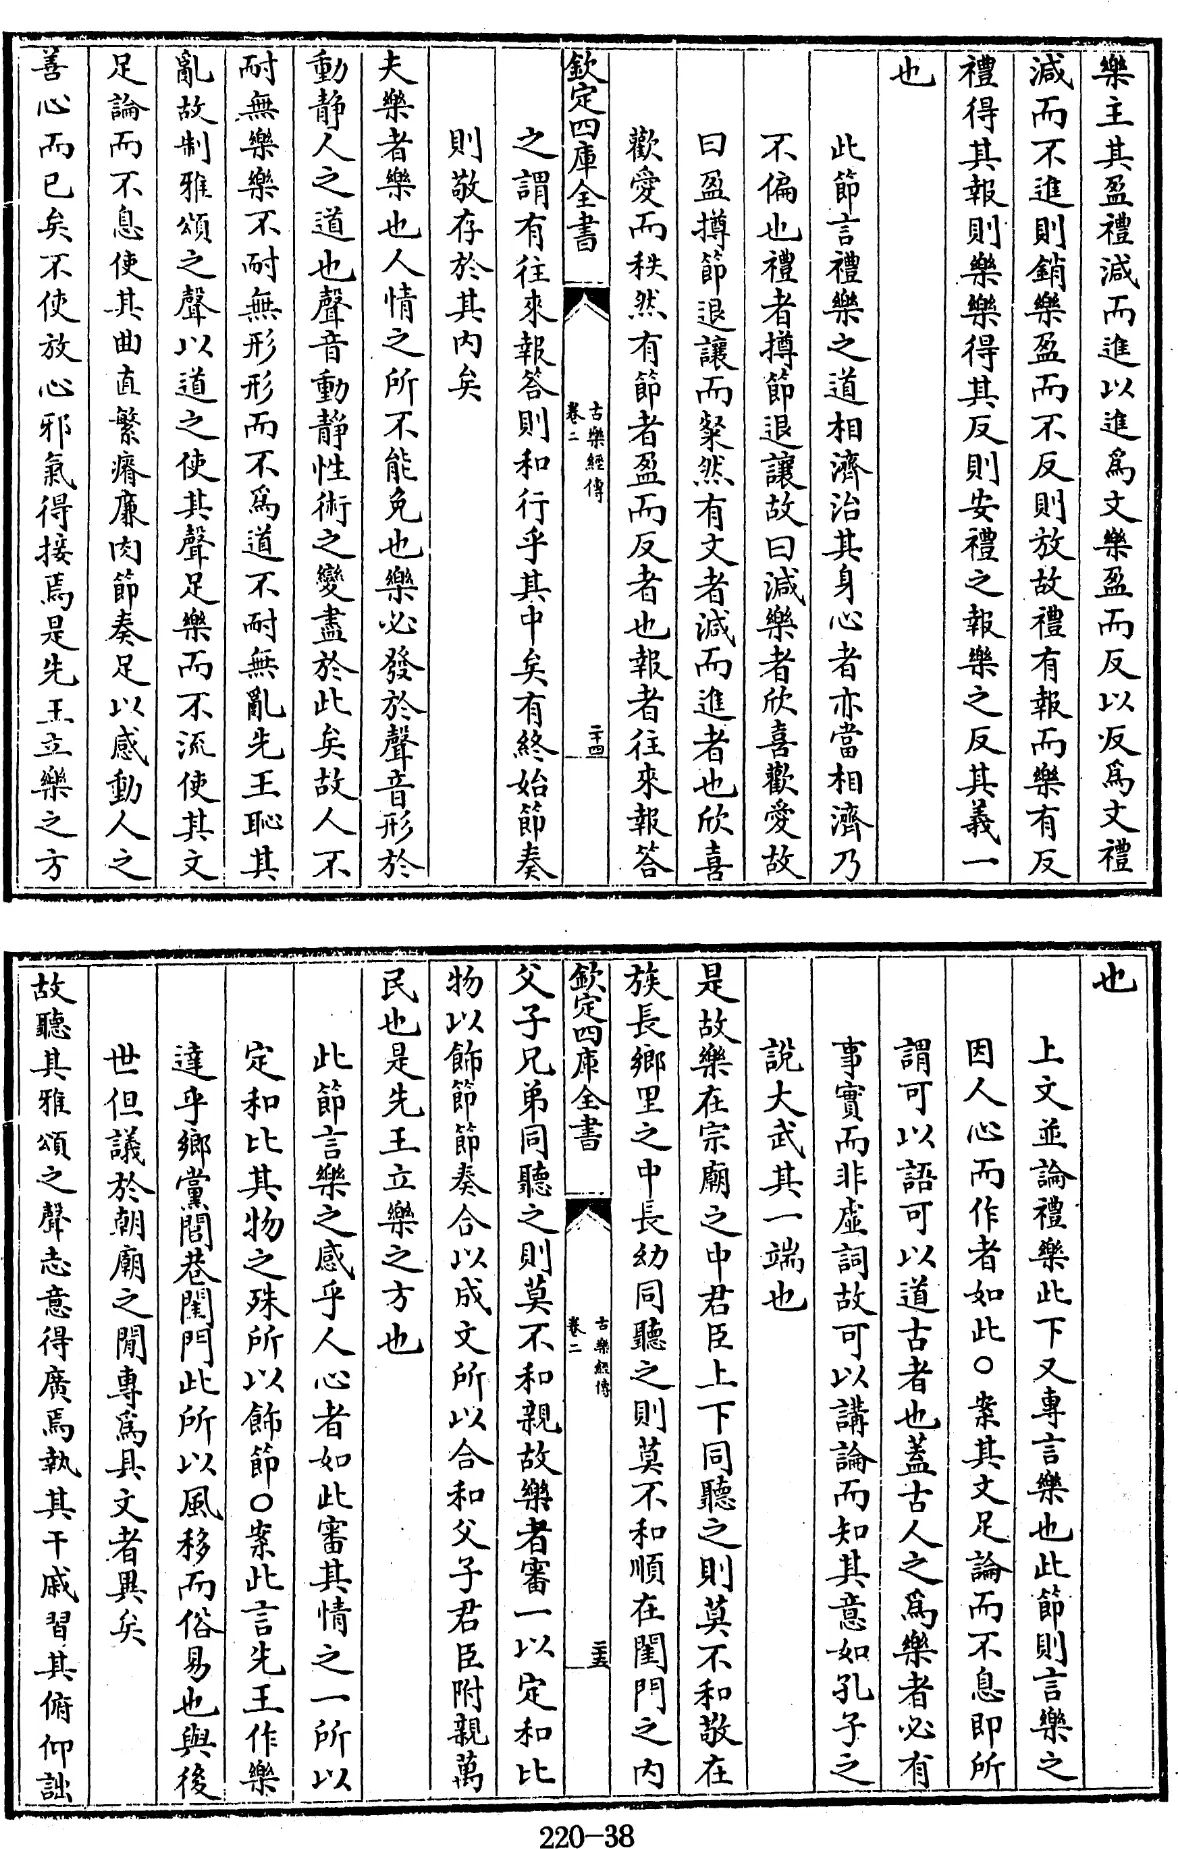 樂主其盈禮減而進以進爲文樂盈而反以反爲文禮
減而不進則銷樂盈而不反則放故禮有報而樂有反
禮得其報則樂樂得其反則安禮之報樂之反其義一
也
此節言禮樂之道相濟治其身心者亦當相濟乃
不偏也禮者撙節退讓故曰減樂者欣喜歡愛故
曰盈撙節退讓而粲然有文者減而進者也欣喜
歡愛而秩然有節者盈而反者也報者往來報答
欽定四庫全書
古樂經傳
卷二
二十四
之謂有往來報答則和行乎其中矣有終始節奏
則敬存於其內矣
夫樂者樂也人情之所不能免也樂必發於聲音形於
動靜人之道也聲音動靜性術之變盡於此矣故人不
耐無樂樂不耐無形形而不爲道不耐無亂先王恥其
亂故制雅頌之聲以道之使其聲足樂而不流使其文
足論而不息使其曲直繁瘠廉肉節奏足以感動人之
善心而已矣不使放心邪氣得接焉是先王立樂之方
也
上文並論禮樂此下又專言樂也此節則言樂之
因人心而作者如此○案其文足論而不息即所
謂可以語可以道古者也蓋古人之爲樂者必有
事實而非虛詞故可以講論而知其意如孔子之
說大武其一端也
是故樂在宗廟之中君臣上下同聽之則莫不和敬在
族長鄉里之中長幼同聽之則莫不和順在閨門之內
欽定四庫全書
古樂經傳
卷二
二十五
父子兄弟同聽之則莫不和親故樂者審一以定和比
物以飾節節奏合以成文所以合和父子君臣附親萬
民也是先王立樂之方也
此節言樂之感乎人心者如此審其情之一所以
定和比其物之殊所以飾節○案此言先王作樂
達乎鄉黨閭巷閨門此所以風移而俗易也與後
世但議於朝廟之閒專爲具文者異矣
故聽其雅頌之聲志意得廣焉執其干戚習其俯仰詘
220-38